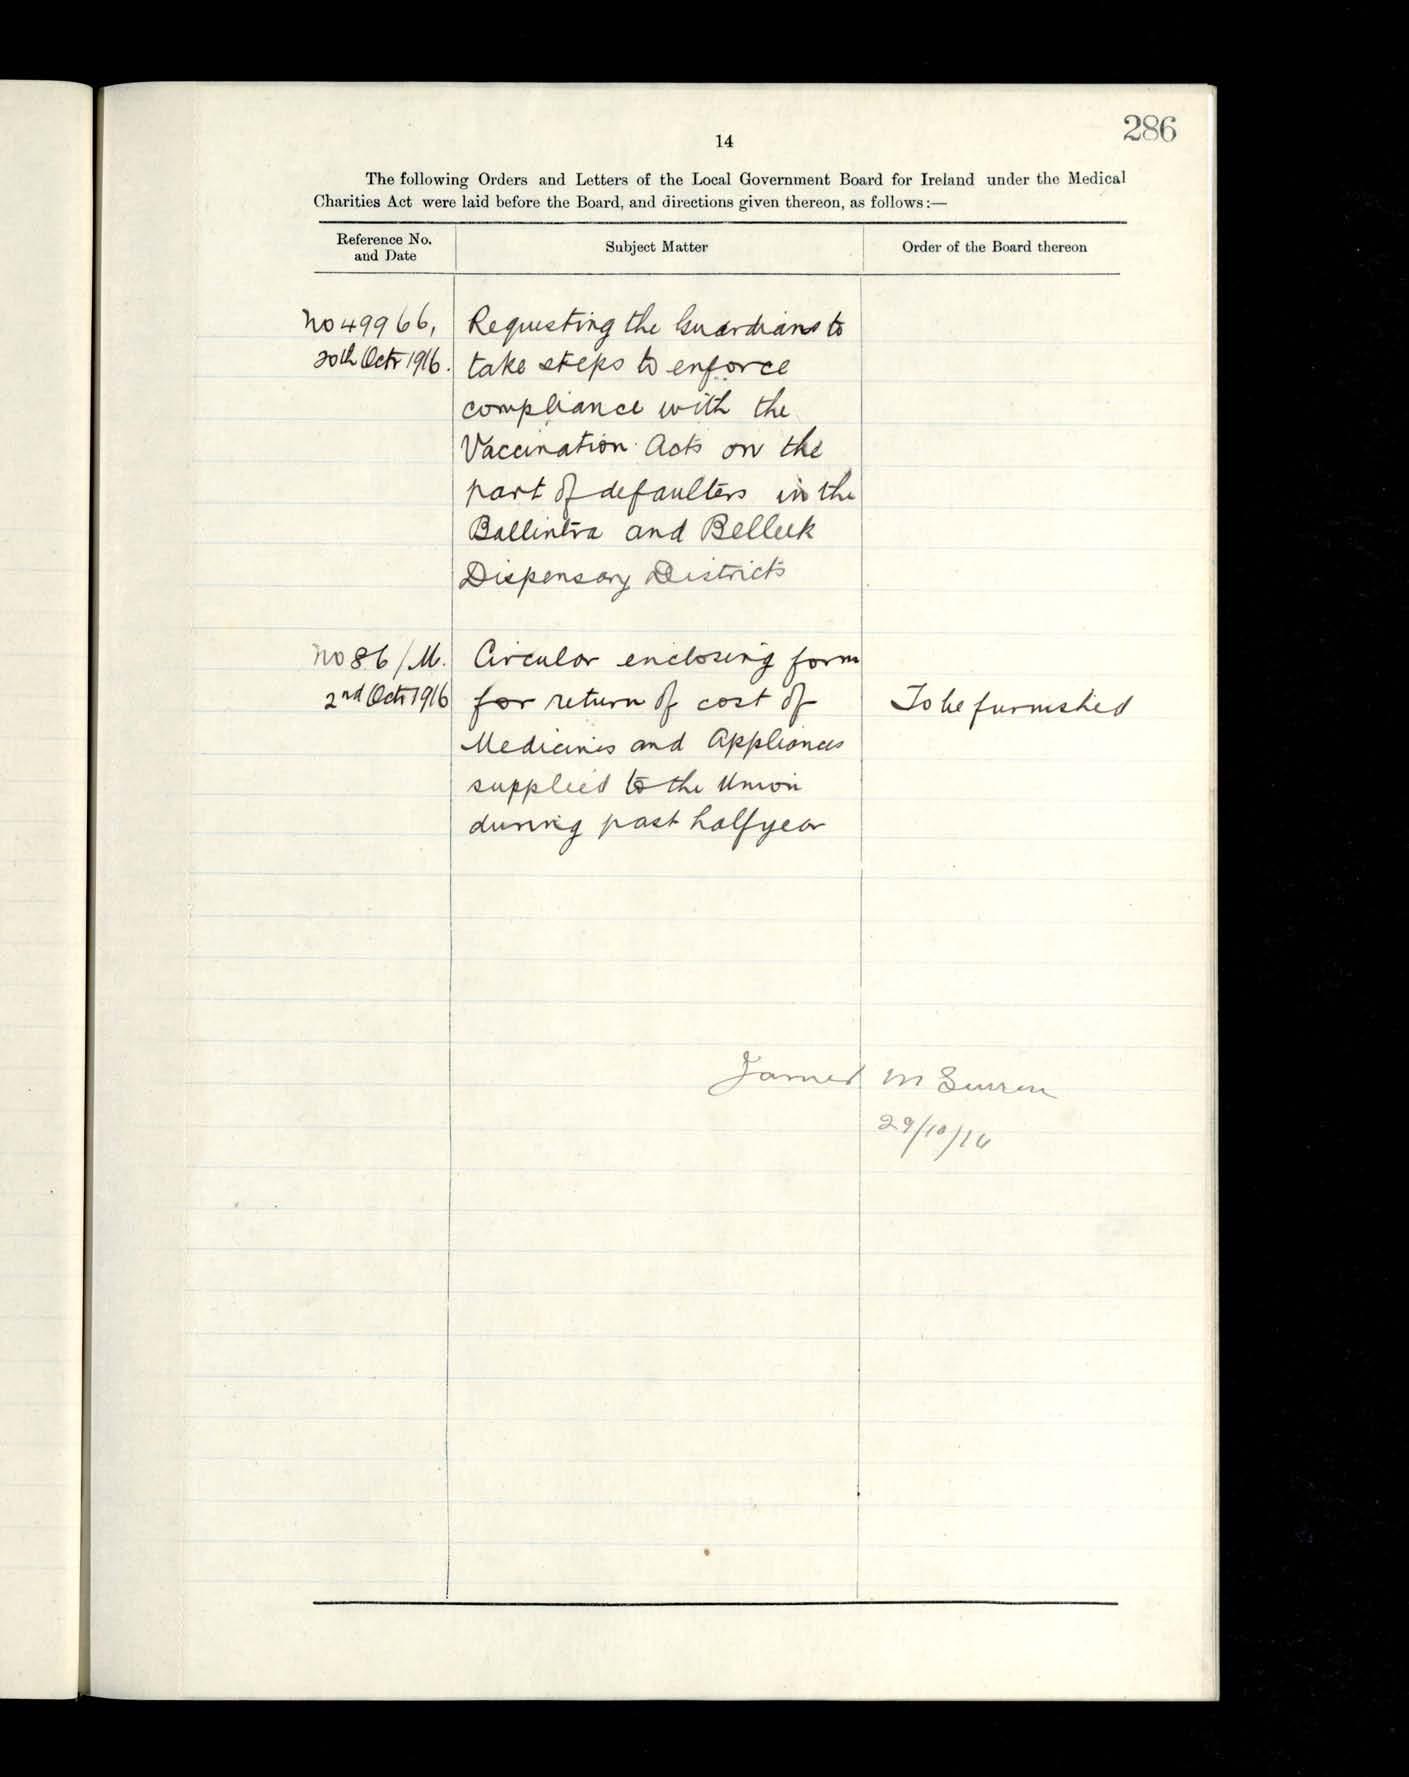 286
14
The following Orders and Letters of the Local Government Board for Ireland under the Medical
Charities Act were laid before the Board, and directions given thereon, as follows:—
Reference No.
and Date
Subject Matter
Order of the Board thereon
No 49966,
20th Octr 1916.
Requesting the Guardians to
take steps to enforce
compliance with the
Vaccination Acts on the
part of defaulters in the
Ballintra and Belleek
Dispensary Districts
No 86/M.
2nd Octr 1916
Circular enclosing form
for return of cost of
Medicines and Appliances
supplied to the Union
during past half year
To be furnished
James
29/10/16